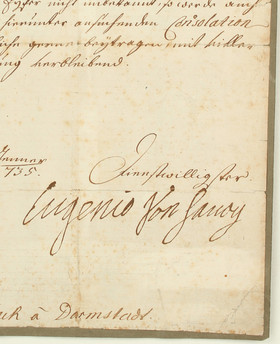 nicht unbekannt, so werde auch
hierunter ansuchenden Consolation
gerne beÿtragen mit
verbleibend.
Jenner
1735
Dienstwilligster
Eugenio Von Savoy
à Darmstadt.